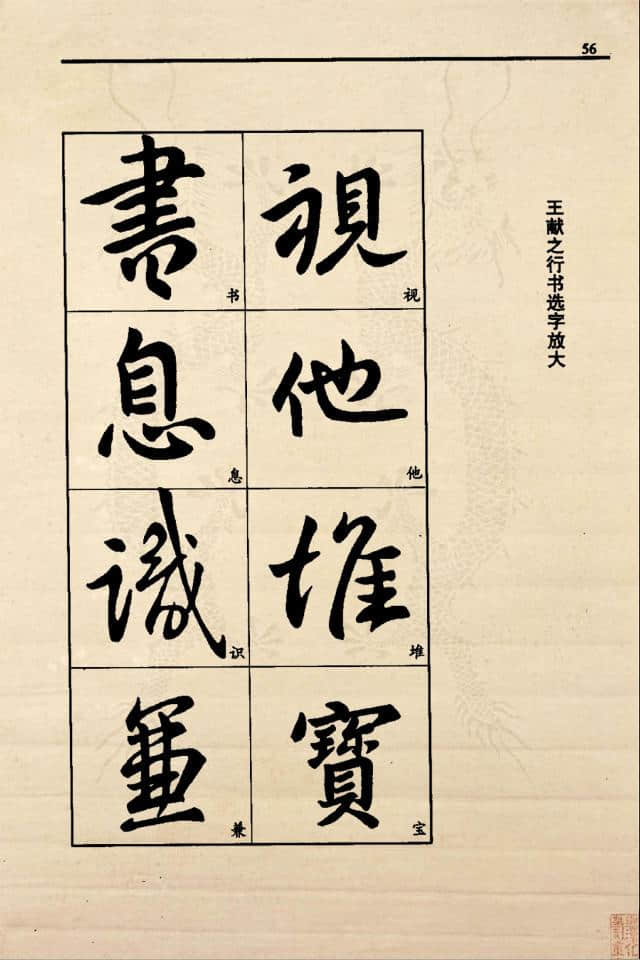 56
王献之行书选字放大
視 视
他 他
堆 堆
寶 宝
書 书
息 息
識 识
兼 兼